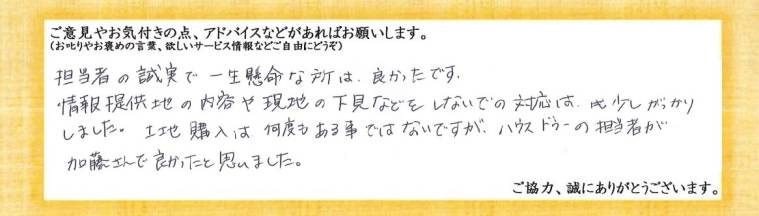 ご意見やお気付きの点、アドバイスなどがあればお願いします。
(お叱りやお褒めの言葉、欲しいサービス情報などご自由にどうぞ)
担当者の誠実で一生懸命な所は、良かったです。
情報提供地の内容や現地の下見などをしないでの対応は、少しがっかり
しました。土地購入は何度もある事ではないですが、ハウスドゥーの担当者が
加藤さんで良かったと思いました。
ご協力、誠にありがとうございます。